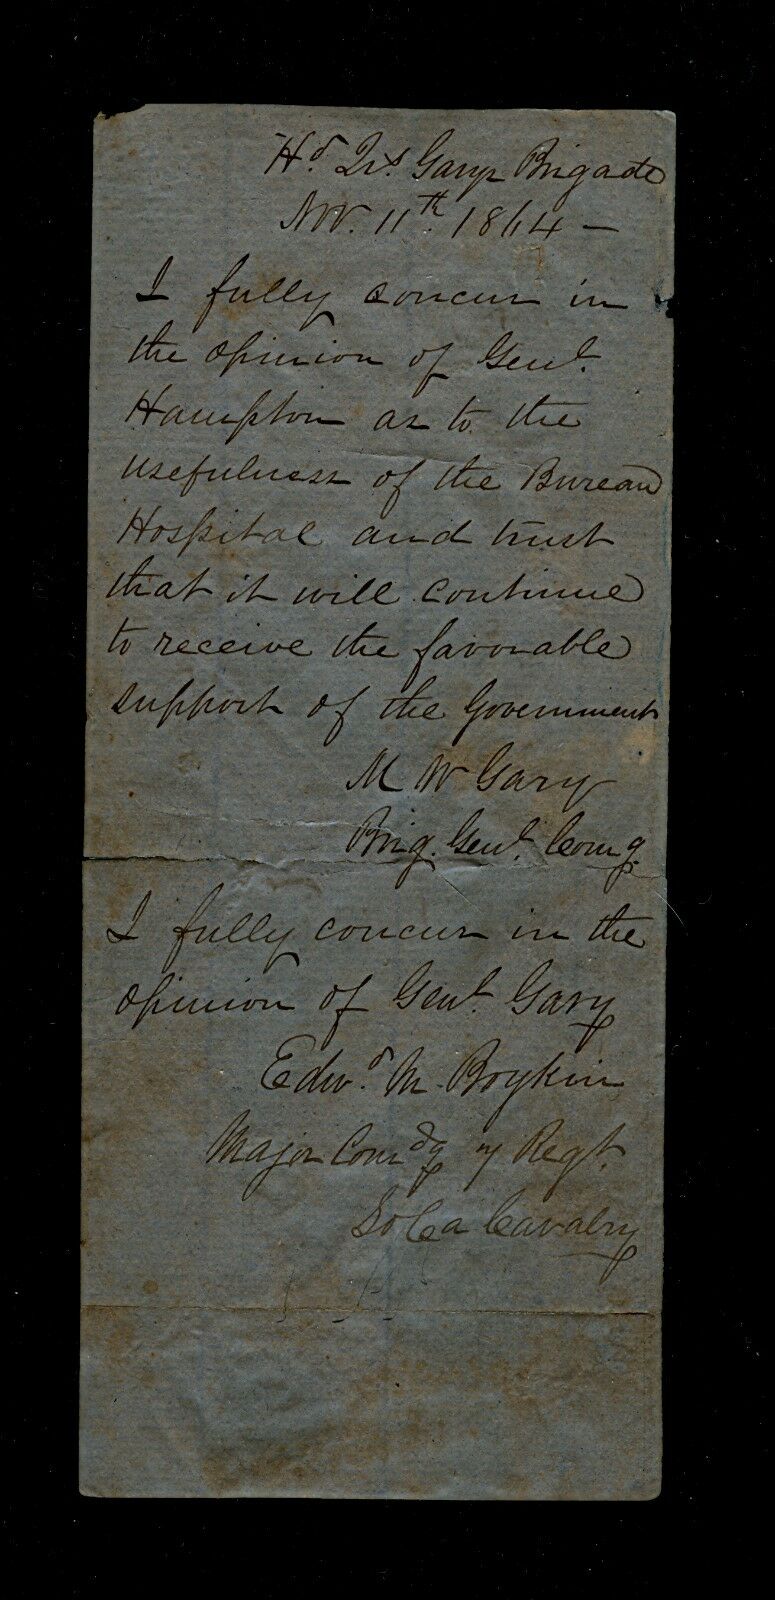 Hd Qrs Garys Brigade
Nov. 11th 1864 –
I fully concur in
the opinion of Genl.
Hampton as to the
usefulness of the Bureau
Hospital and trust
that it will continue
to receive the favorable
support of the Government
M W Gary
Brig. Genl. Comg.
I fully concur in the
opinion of Genl. Gary
Edwd. M. Boykin
Major Comdg 7 Regt.
So Ca Cavalry